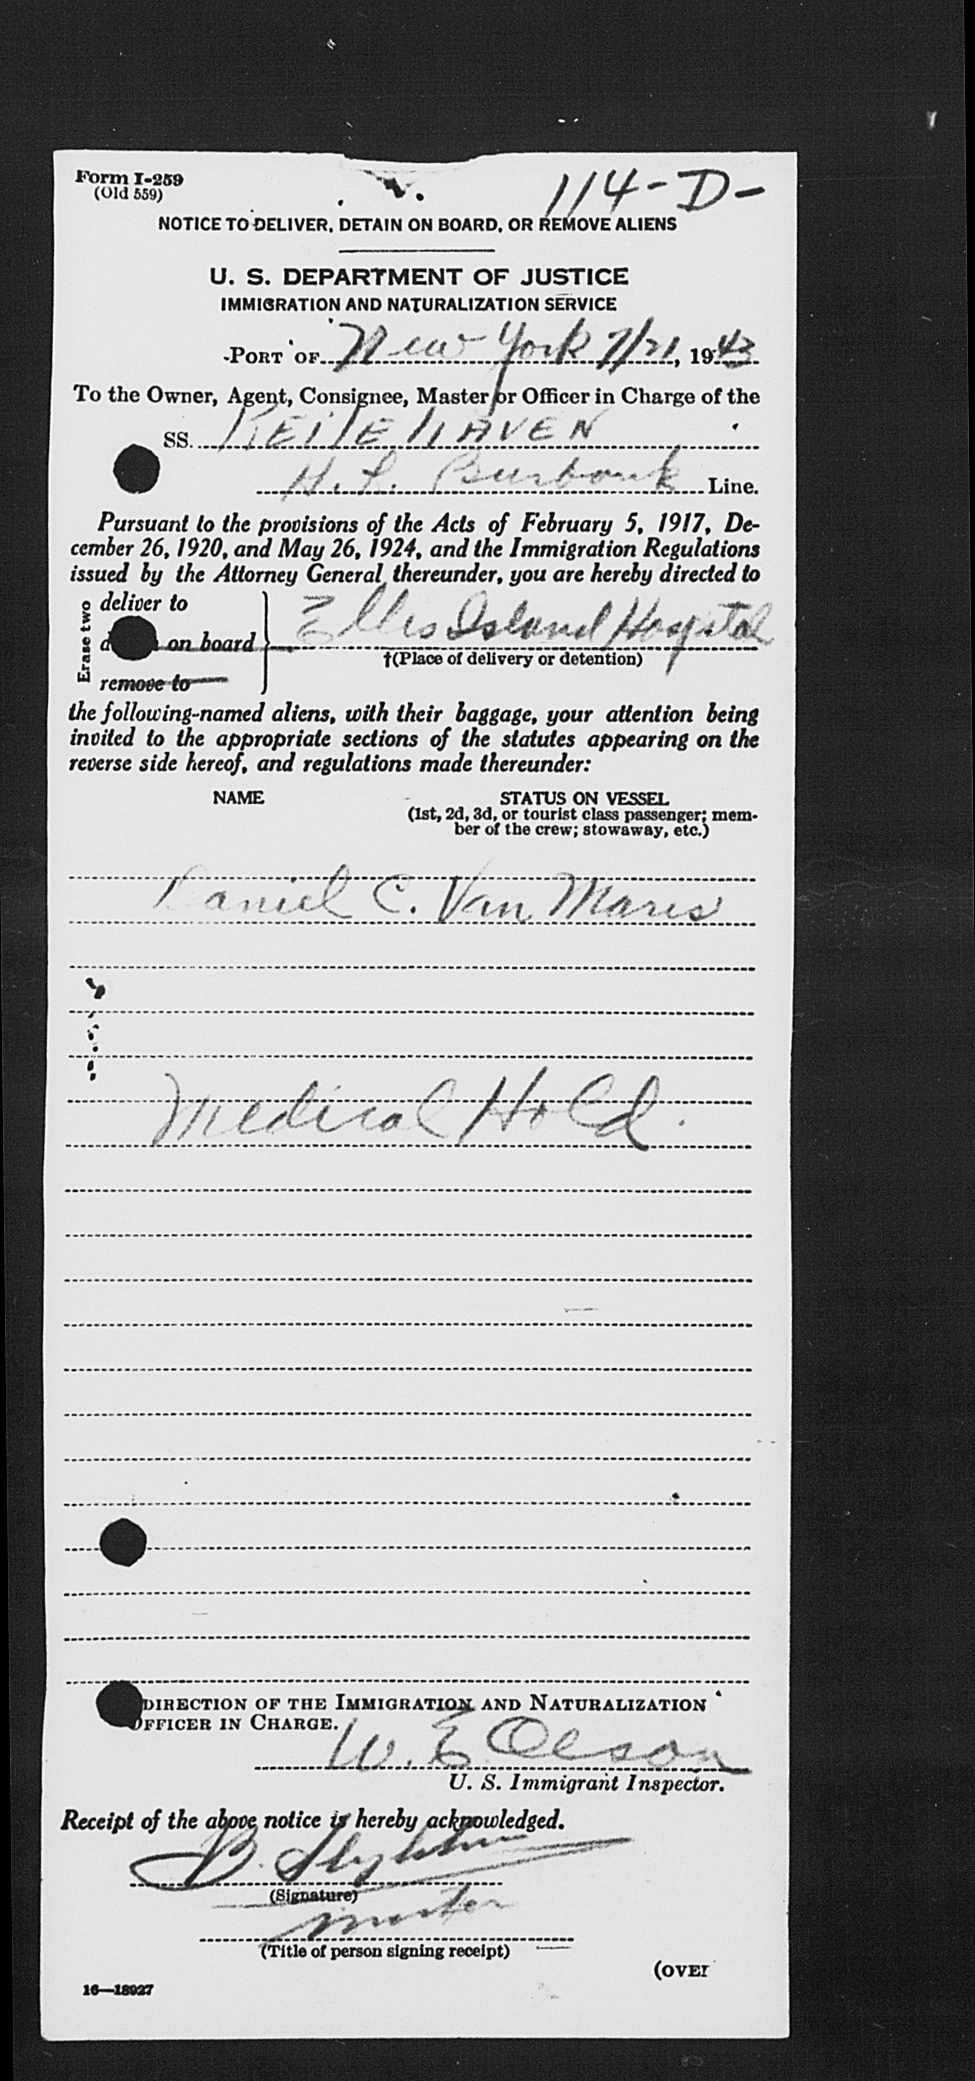 Form I-259
(Old 559)
114-D-
NOTICE TO DELIVER, DETAIN ON BOARD, OR REMOVE ALIENS
U. S. DEPARTMENT OF JUSTICE
IMMIGRATION AND NATURALIZATION SERVICE
PORT OF New York 7/21, 1943
To the Owner, Agent, Consignee, Master or Officer in Charge of the
SS. HAVEN
H. L. Burbank Line.
Pursuant to the provisions of the Acts of February 5, 1917, De-
cember 26, 1920, and May 26, 1924, and the Immigration Regulations
issued by the Attorney General thereunder, you are hereby directed to
Erase two
deliver to
on board
remove to
Ellis Island Hospital
†(Place of delivery or detention)
the following-named aliens, with their baggage, your attention being
invited to the appropriate sections of the statutes appearing on the
reverse side hereof, and regulations made thereunder:
NAME STATUS ON VESSEL
(1st, 2d, 3d, or tourist class passenger; mem-
ber of the crew; stowaway, etc.)
Daniel C. Van Maris
Medical Hold.
DIRECTION OF THE IMMIGRATION AND NATURALIZATION
OFFICER IN CHARGE.
W. E Olson
U. S. Immigrant Inspector.
Receipt of the above notice is hereby acknowledged.
(Signature)
master
(Title of person signing receipt)
(OVER
16—18927